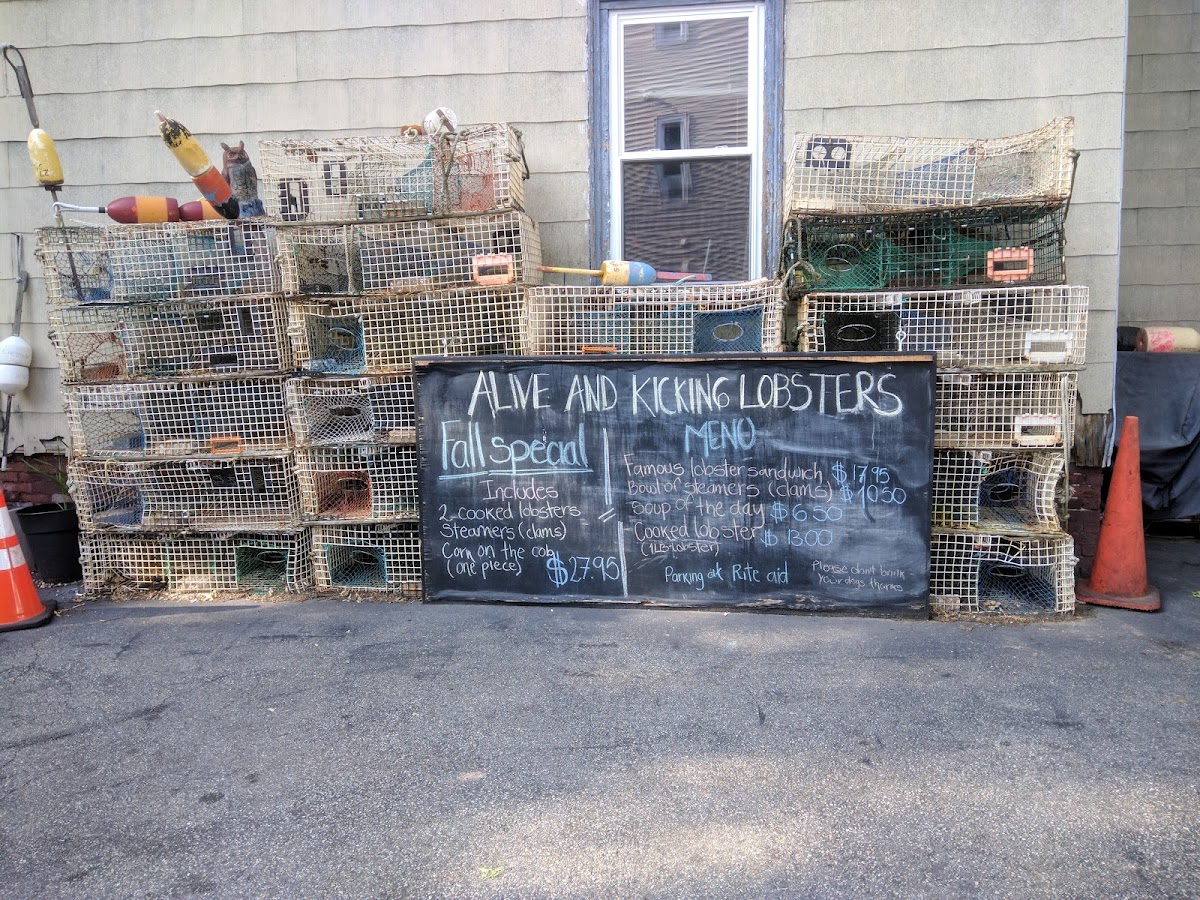 ALIVE AND KICKING LOBSTERS
Fall special
Includes
2-cooked lobsters
Steamers (clams)
Corn on the cob
(one piece) $27.95
MENU
Famous lobster sandwich $17.95
Bowl of steamers (clams) $10.50
Soup of the day $6.50
Cooked lobster $13.00
(1LB-lobster)
Parking at Rite aid
Please dont
your days thanks